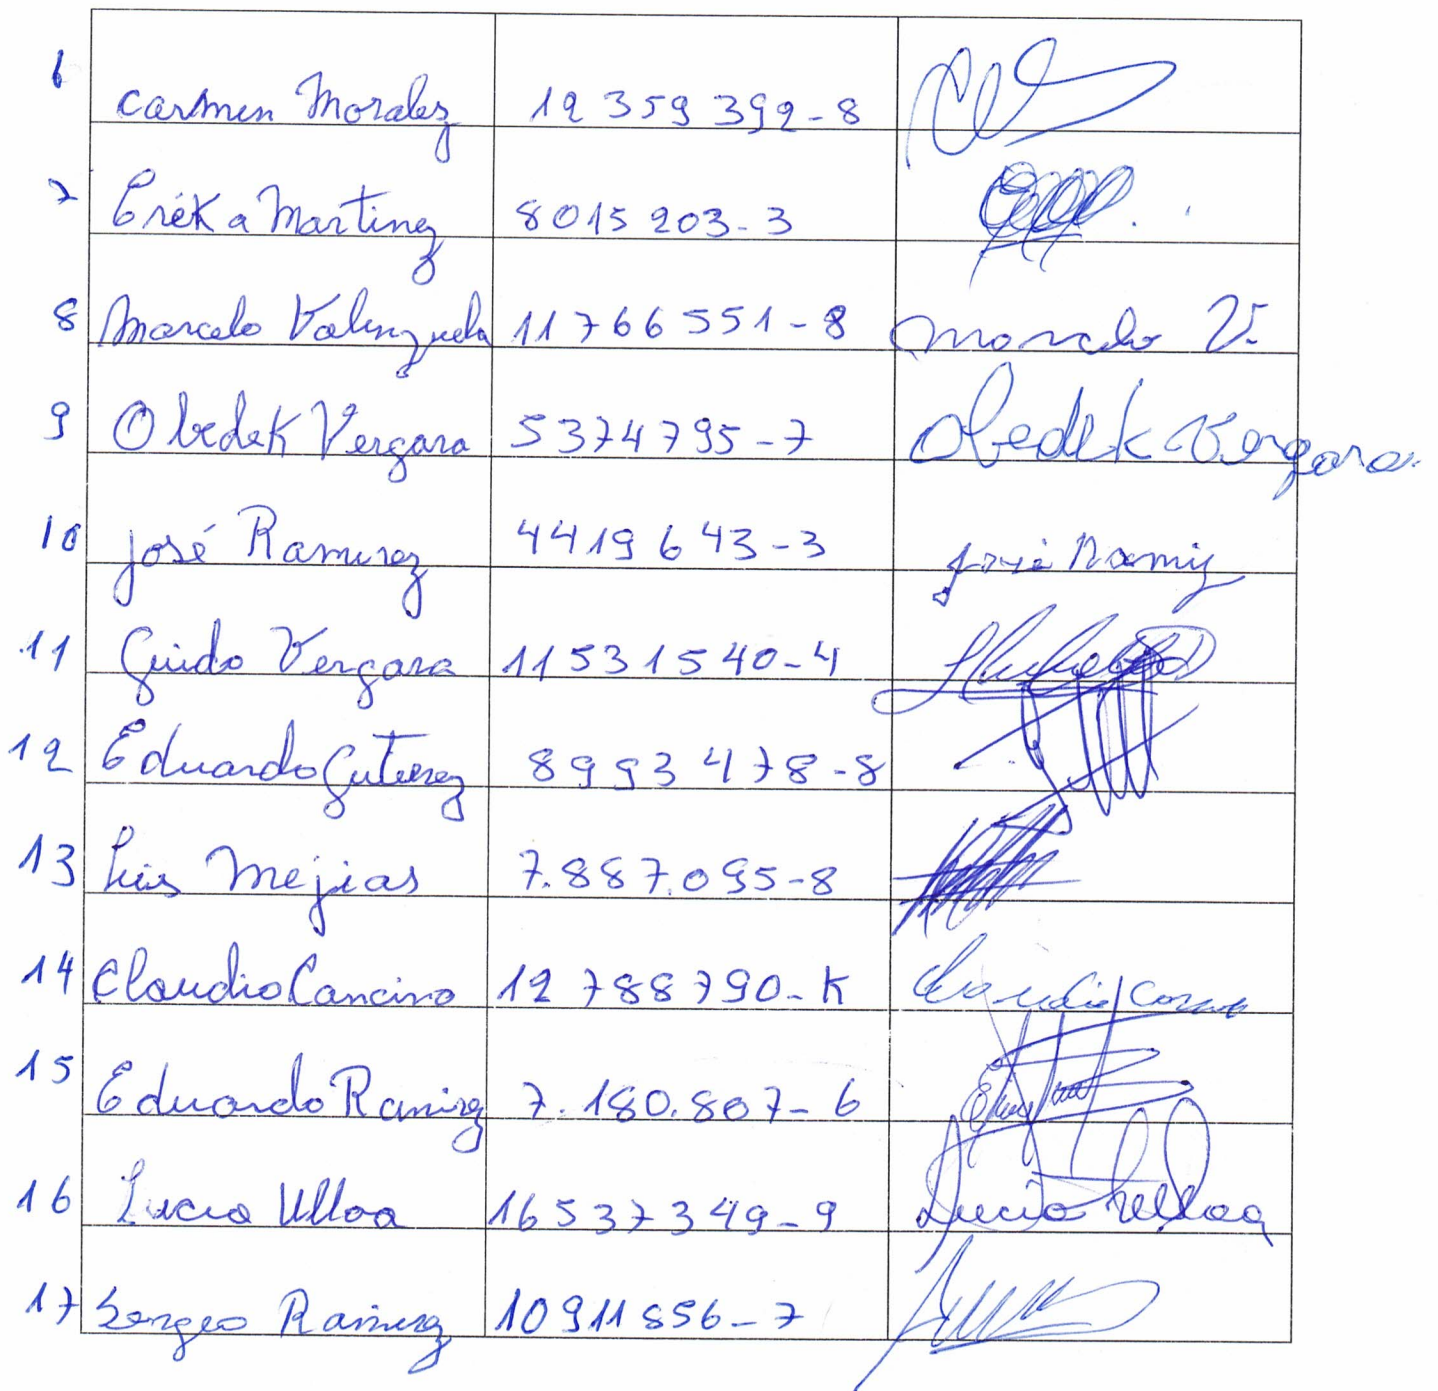 6 Carmen Morales 12 359 392-8
7 Eréka Martinez 8015 203-3
8 Marcelo Valenzuela 11766 551-8 Marcelo V.
9 Obedek Vergara 5374795-7 Obedek Vergara
10 José Ramirez 4419 643-3 José Ramirez
11 Guido Vergara 11531540-4
12 Eduardo Guterrez 8993478-8
13 Luis Mejias 7.887.095-8
14 Claudio Cancino 12 788790-K Claudio
15 Eduardo Ramirez 7.180.807-6
16 Lucia Ulloa 16537349-9 Lucia Ulloa
17 Sergeo Ramirez 10911856-7